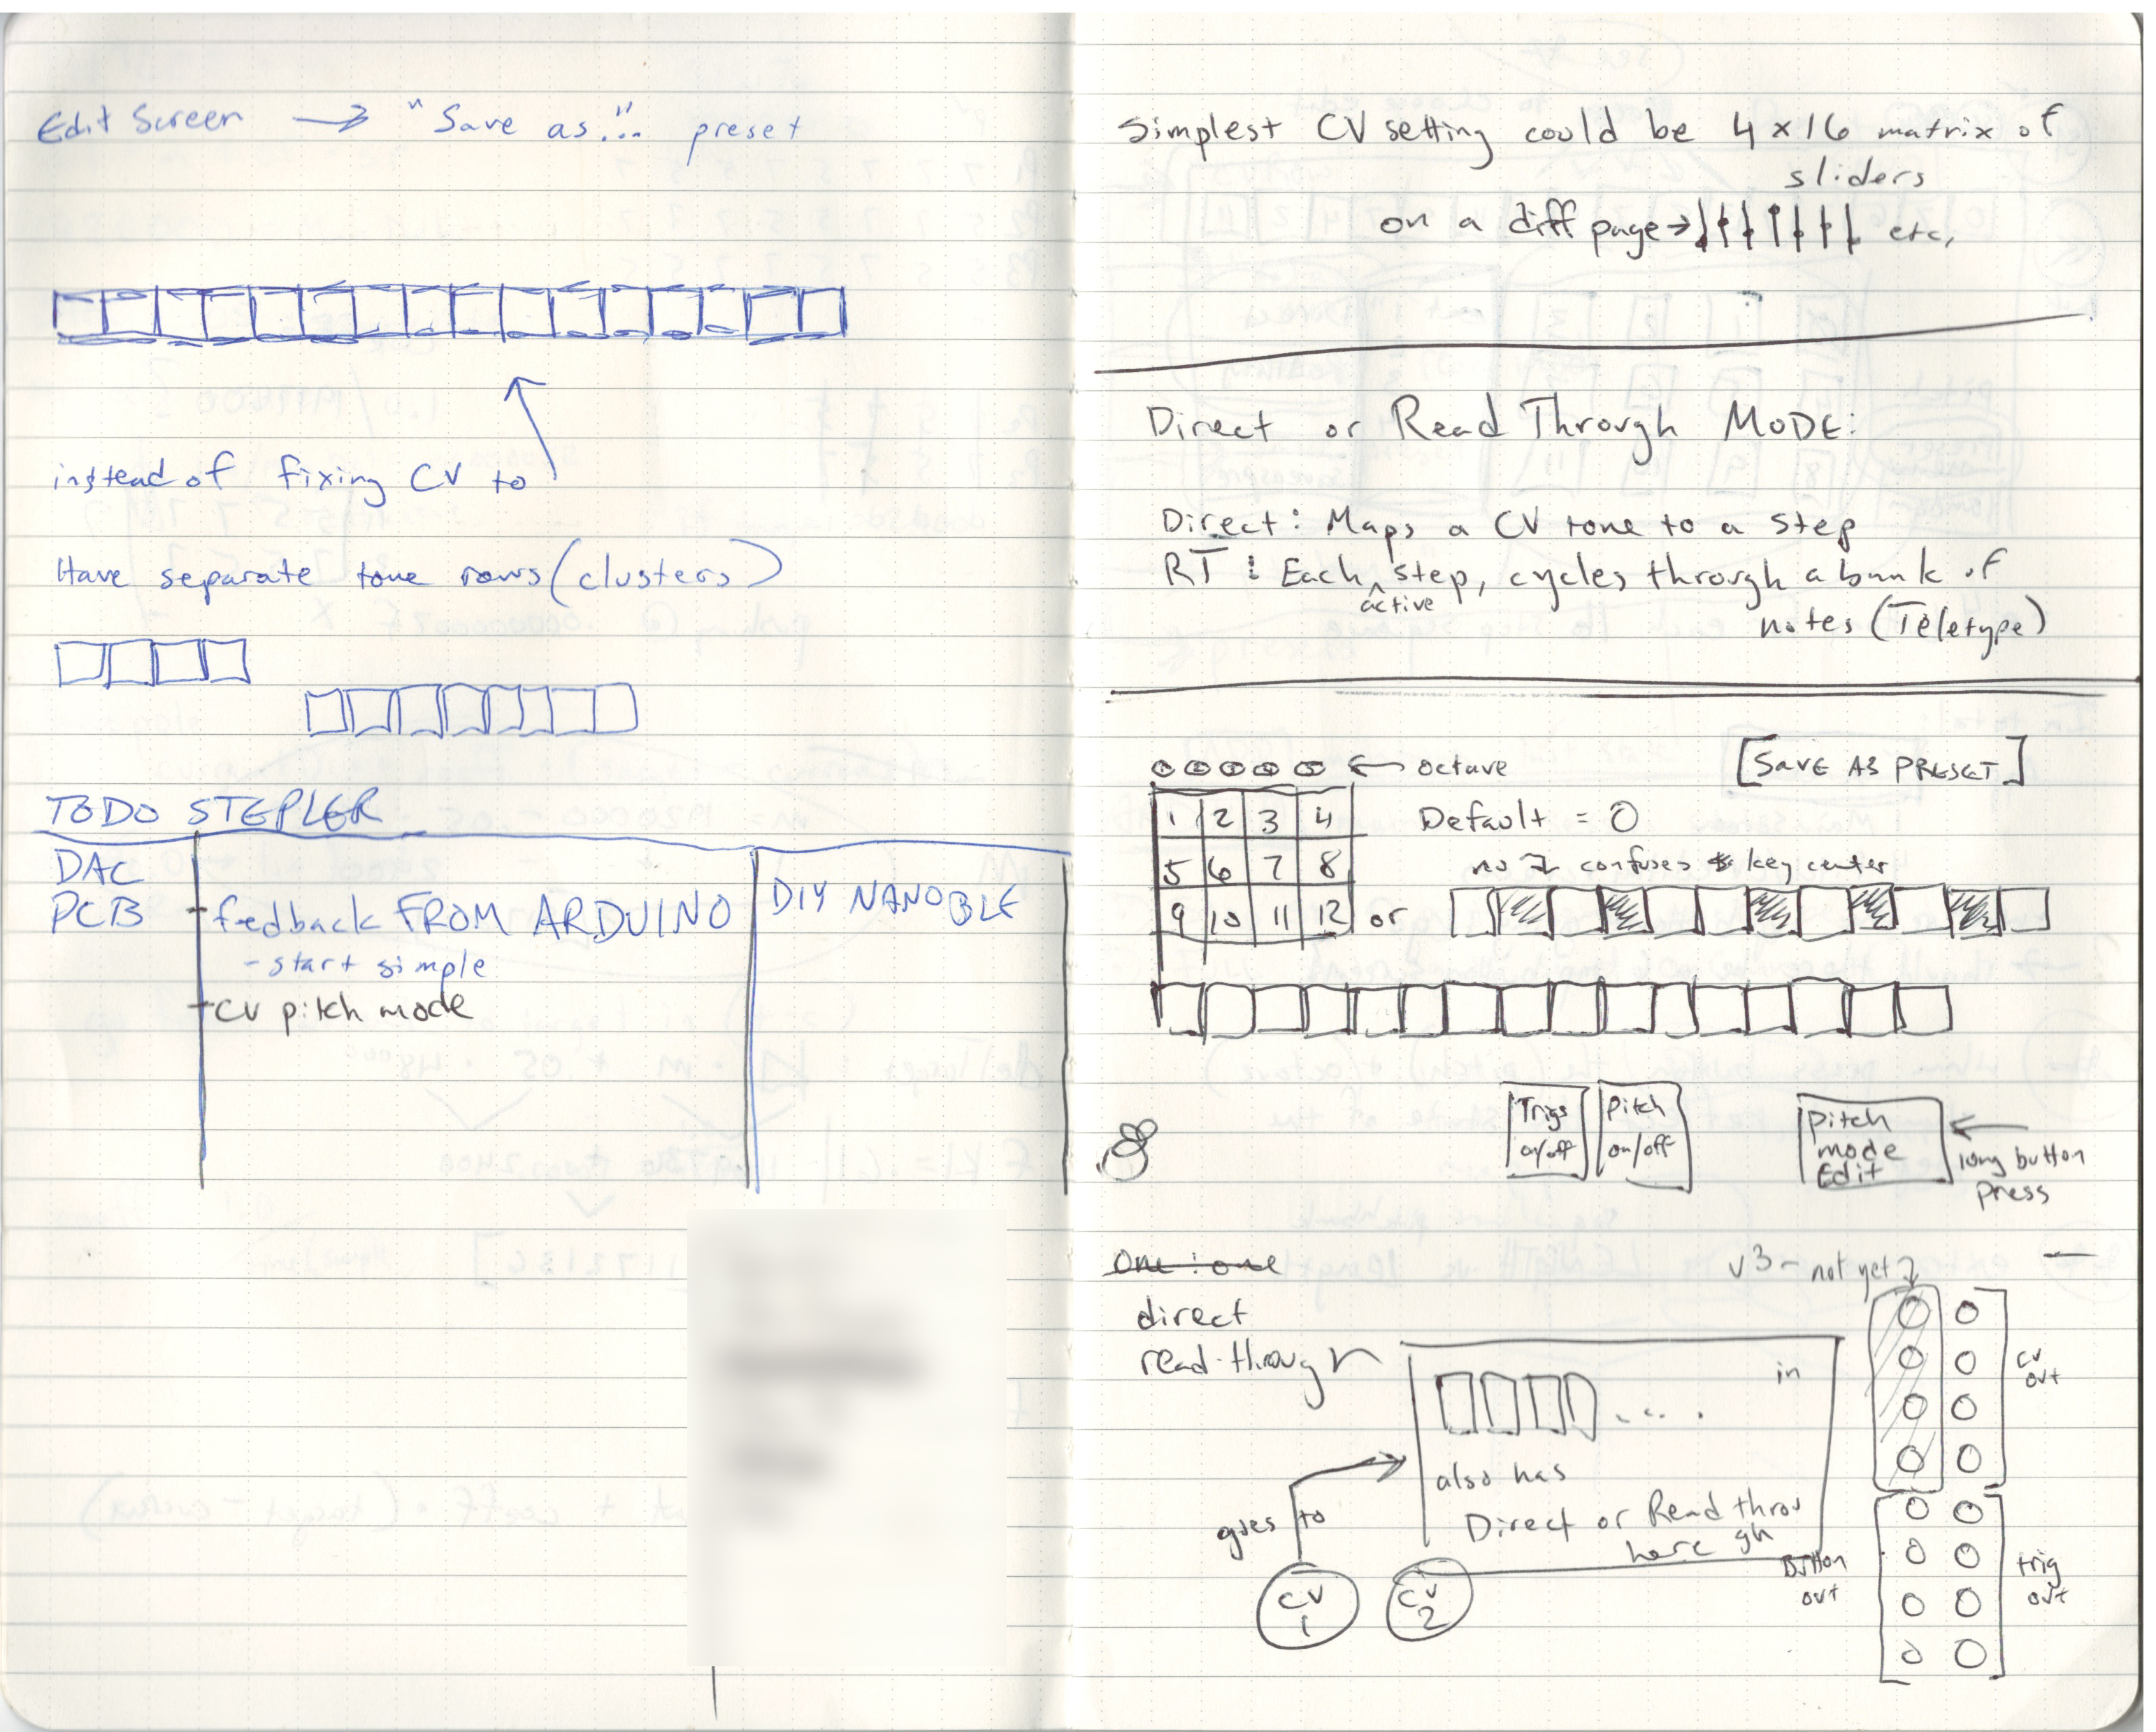 Edit Screen → "Save as..." preset
instead of fixing CV to
Have separate tone rows (clusters)
TODO STEPLER
DAC
PCB
- feedback FROM ARDUINO
- start simple
- CV pitch mode
DIY NANO BLE
Simplest CV setting could be 4x16 matrix of
sliders
on a diff page → etc,
Direct or Read Through MODE:
Direct: Maps a CV tone to a step
RT: Each active step, cycles through a bank of
notes (Teletype)
← octave
[SAVE AS PRESET]
1 2 3 4
5 6 7 8
9 10 11 12
Default = 0
confuses key center
or
Trigs
on/off
Pitch
on/off
Pitch
mode
Edit
long button
press
One : one
direct
read-through
v3 - not yet
in
also has
Direct or Read throu
gh
here
goes to
CV
1
CV
2
CV
out
Button
out
trig
out